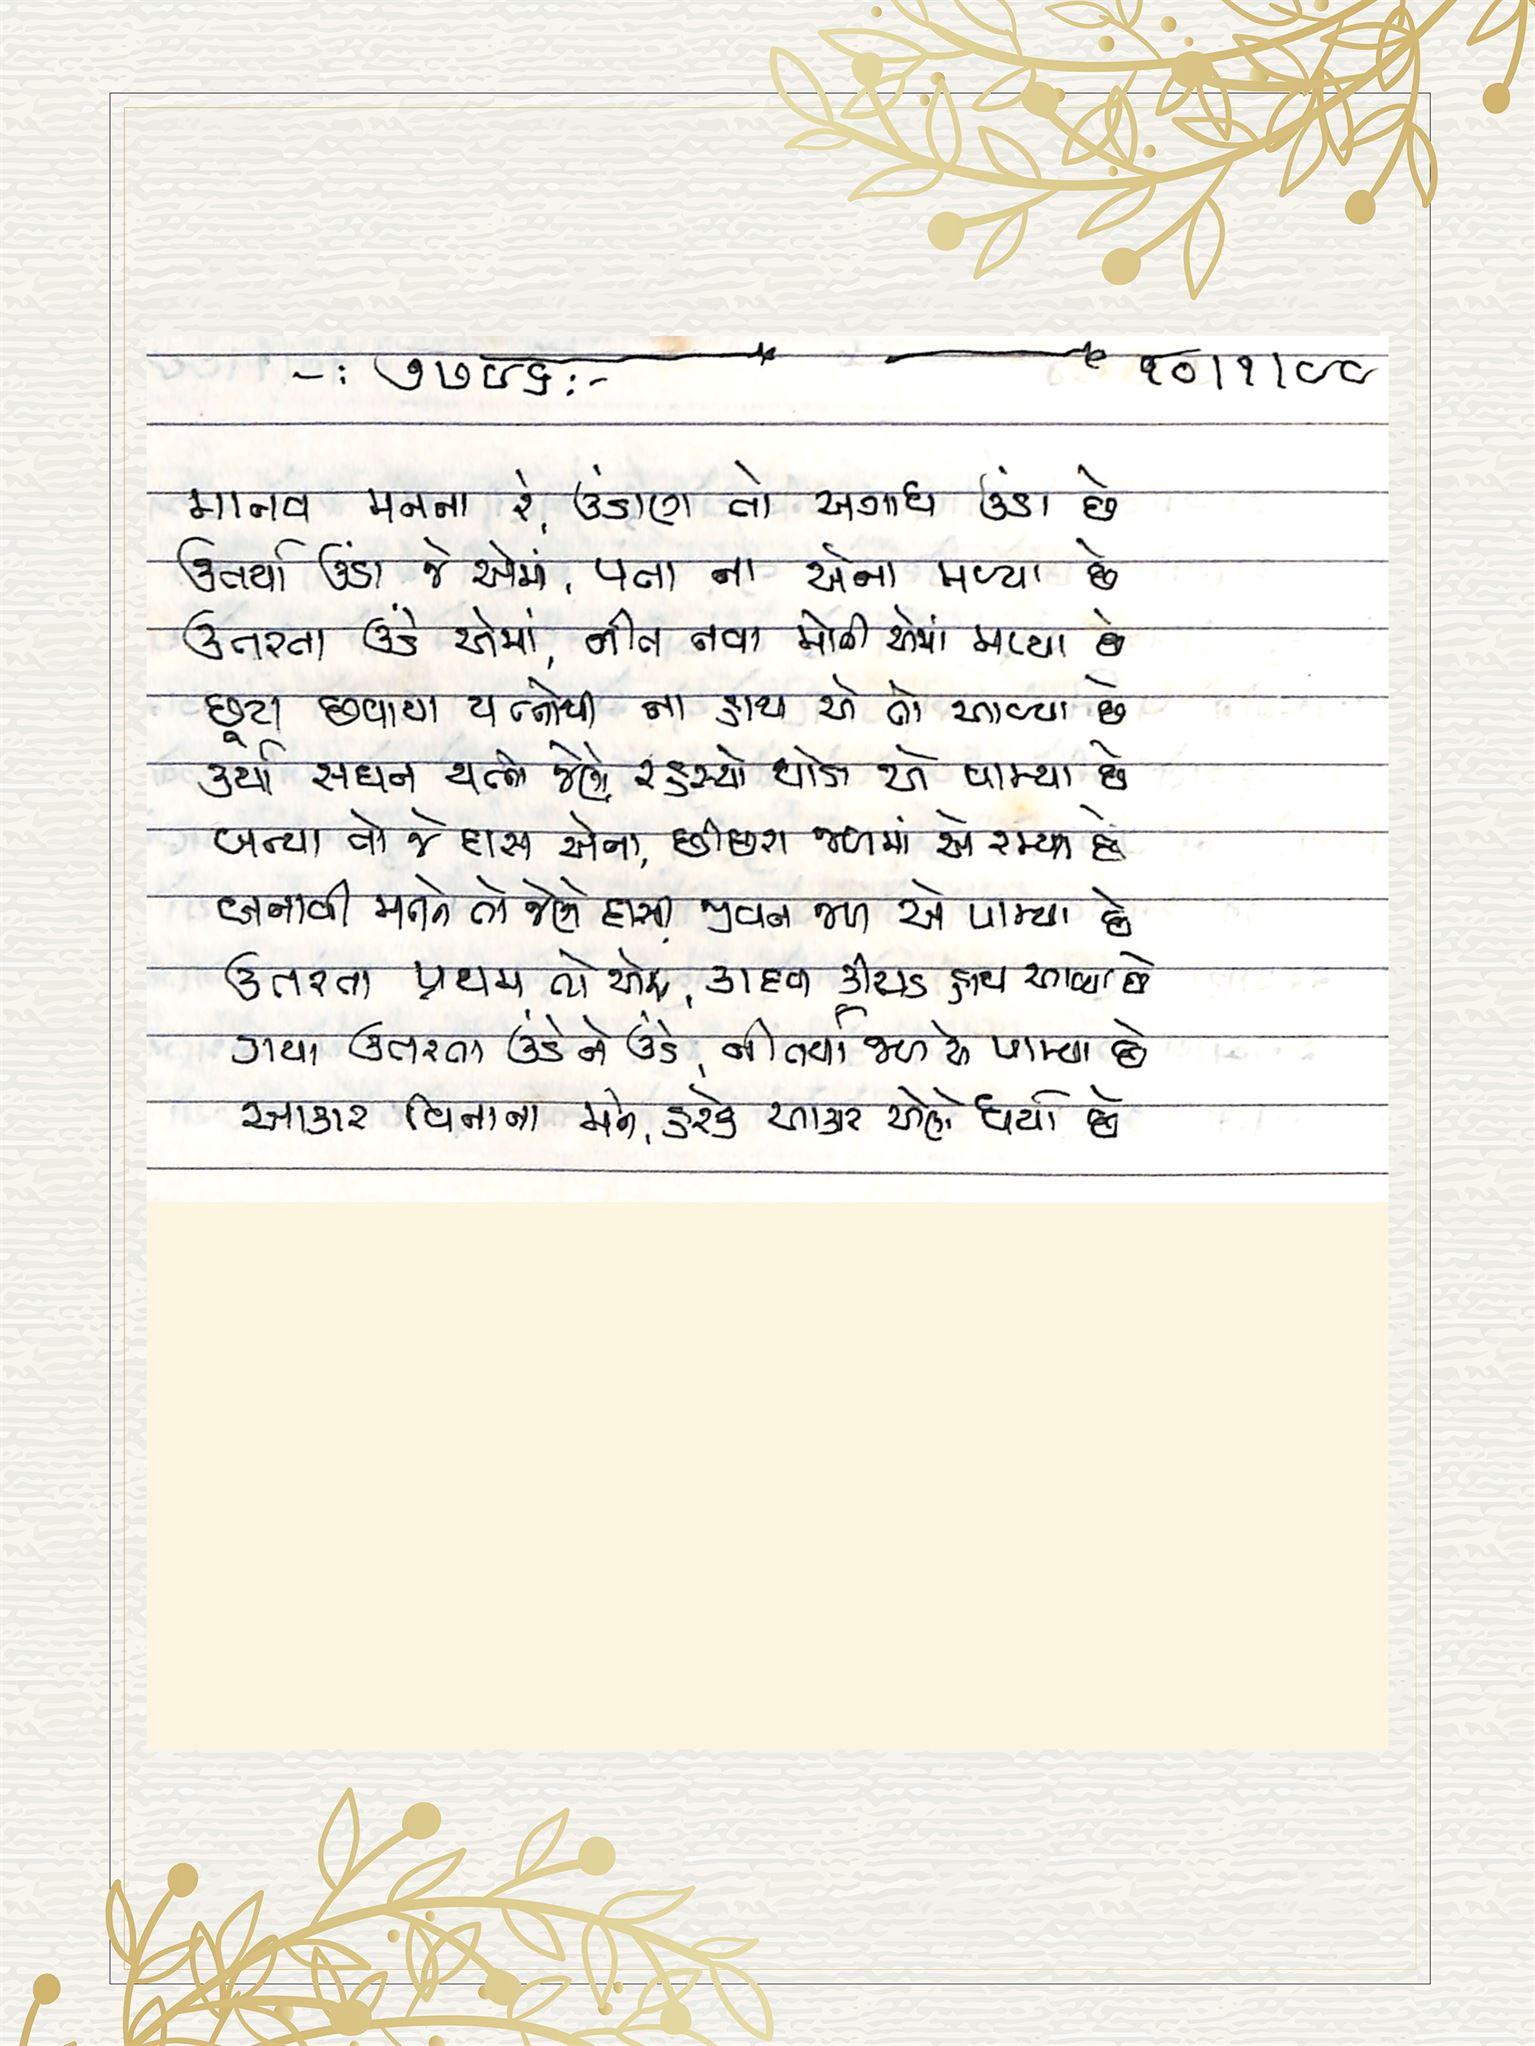 -: ૭૭૯૬ :-                    ૧૦|૧|૯૯
માનવ મનના રે, ઉંડાણ તો અગાધ ઉંડા છે
ઉતર્યા ઉંડા જે એમાં, પતા ના એના મળ્યા છે
ઉતરતા ઉંડે એમાં, નીત નવા મોતી એમાં મળ્યા છે
છૂટા છવાયા યત્નોથી ના હાથ એ તો આવ્યા છે
કર્યા સઘન યત્નો જેણે, રહસ્યો થોડા એ પામ્યા છે
બન્યા તો જે દાસ એના, છીછરા જળમાં એ રમ્યા છે
બનાવી મનને તો જેણે દાસ, જીવન જળ એ પામ્યા છે
ઉતરતા પ્રથમ તો એમાં, કાદવ કીચડ હાથ આવ્યા છે
ગયા ઉતરતા ઉંડે ને ઉંડે, નીતર્યા જળ એ પામ્યા છે
આકાર વિનાના મને, હરેક આકાર એણે ધર્યા છે